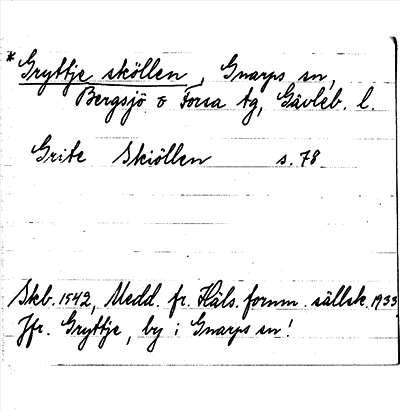 * Gryttje sköllen, Gnarps sn,
Bergsjö o Forsa tg, Gävleb. l.
Grite Skiöllen s. 78
Skb. 1542, Medd. fr. Häls. fornm. sällsk. 1933
Jfr. Gryttje, by i Gnarps sn!